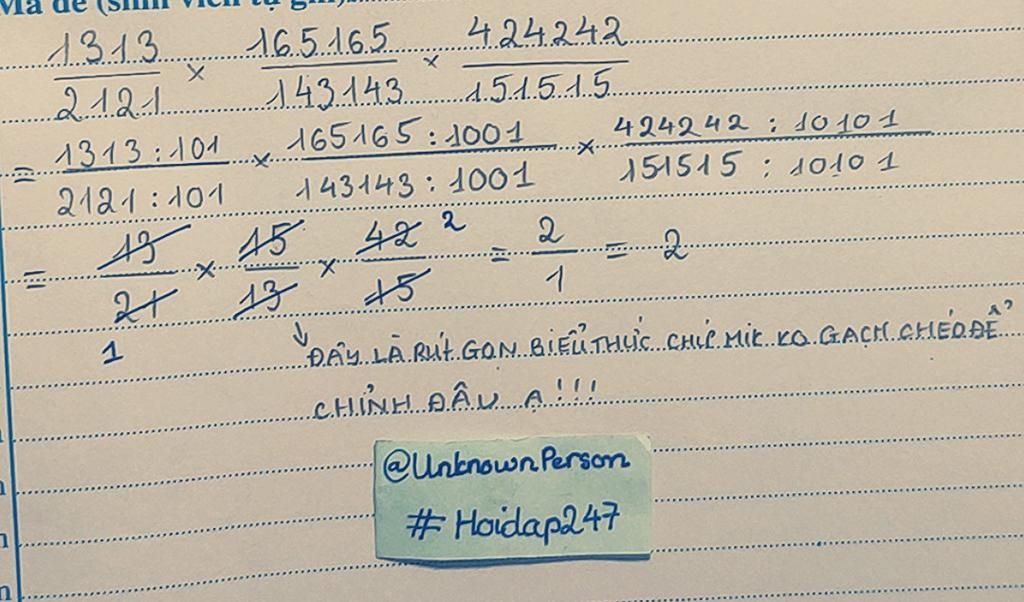 Mã đề (sinh viên tự ghi)
1313/2121 × 165165/143143 × 424242/151515
= 1313:101/2121:101 × 165165:1001/143143:1001 × 424242:10101/151515:10101
= 13/21 × 15/13 × 42/15 2 = 2/1 = 2
1
↓ ĐÂY LÀ RÚT GỌN BIỂU THỨC CHỨ MIK KO GẠCH CHÉO ĐỂ
CHỈNH ĐÂU Ạ!!!
@UnknownPerson
#Hoidap247